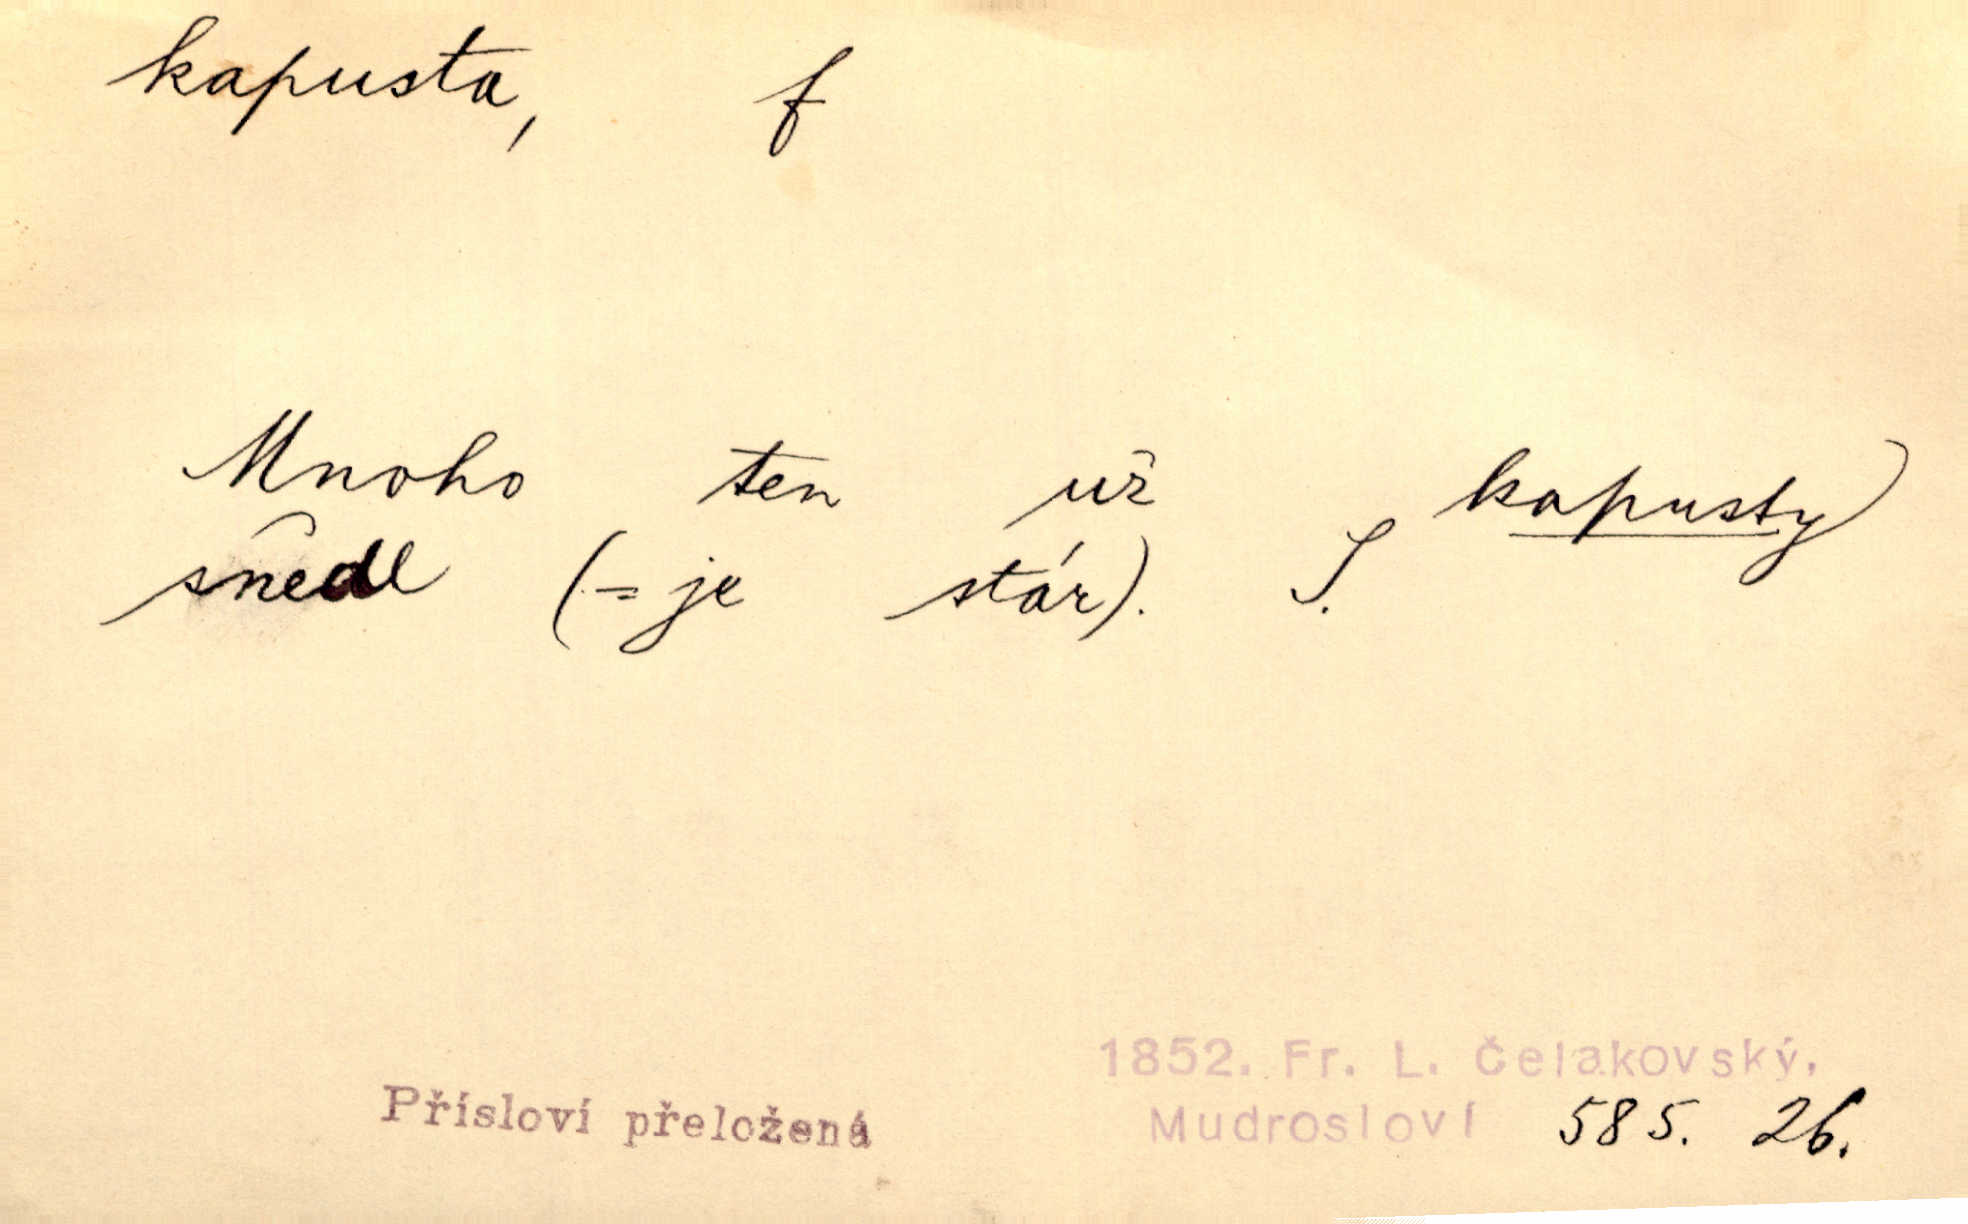 kapusta, f
Mnoho ten už kapusty)
snědl (= je stár). S.
1852. Fr. L. Čelakovský,
Přísloví přeložená
Mudrosloví 585. 26.